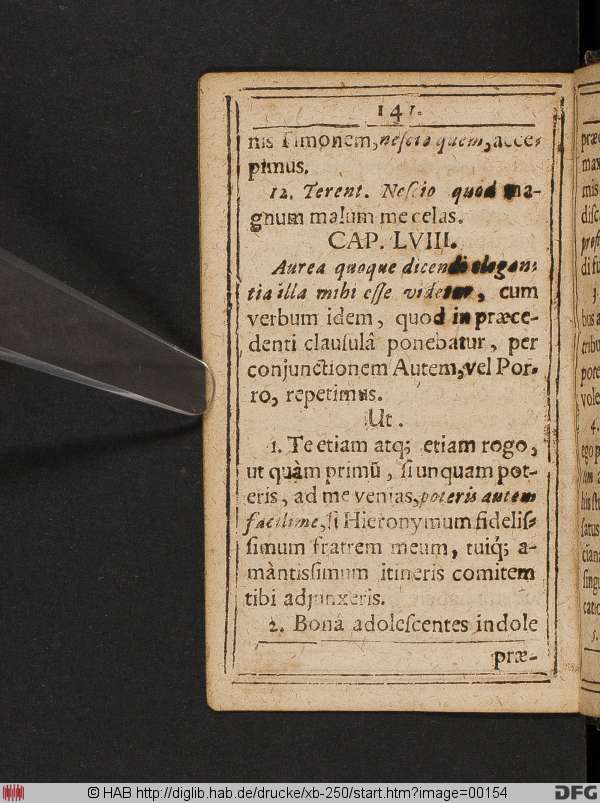 141.
nis Timonem, neſcio quem, acce-
pimus.
12. Terent. Neſcio quod ma-
gnum malum me celas.
CAP. LVIII.
Aurea quoque dicendi elegan-
tia illa mihi eſſe videtur, cum
verbum idem, quod in præce-
denti clauſulâ ponebatur, per
conjunctionem Autem, vel Por-
ro, repetimus.
Ut.
1. Te etiam atq; etiam rogo,
ut quàm primū, ſi unquam pot-
eris, ad me venias, poteris autem
facilime, ſi Hieronymum fideliſ-
ſimum fratrem meum, tuiq; a-
màntissimum itineris comitem
tibi adjunxeris.
2. Bonâ adoleſcentes indole
præ-
præ
max
mis
diſc
profe
di fu
3
bus a
tribu
pote
vole
4.
ego p
his ſtu
ſatus
ciana
ſingu
catio
5.
© HAB http://diglib.hab.de/drucke/xb-250/start.htm?image=00154
DFG